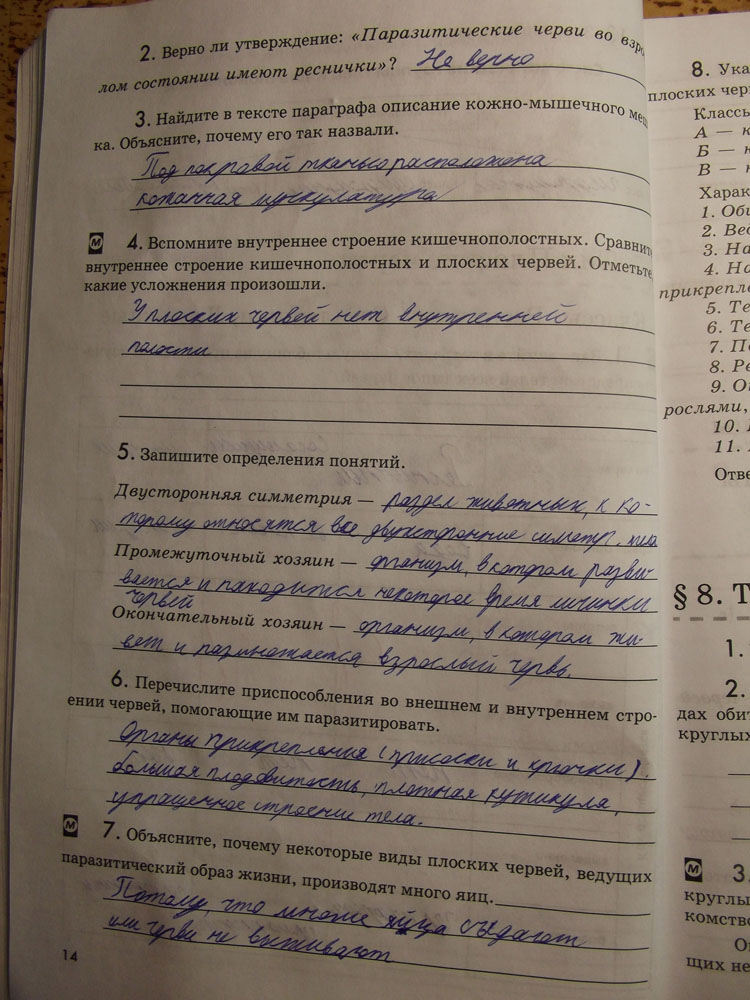 2. Верно ли утверждение: «Паразитические черви во взро
лом состоянии имеют реснички»? Не верно
3. Найдите в тексте параграфа описание кожно-мышечного меш
ка. Объясните, почему его так назвали.
Под покровой тканью расположена
кожанная мускулатура
М 4. Вспомните внутреннее строение кишечнополостных. Сравните
внутреннее строение кишечнополостных и плоских червей. Отметьте,
какие усложнения произошли.
У плоских червей нет внутренней
полости
5. Запишите определения понятий.
Двусторонняя симметрия — раздел животных, к ко-
торому относятся все двухсторонние
Промежуточный хозяин — организм, в котором разви-
вается и находится некоторое время личинки
червей
Окончательный хозяин — организм, в котором жи-
вет и размножается взрослый червь.
6. Перечислите приспособления во внешнем и внутреннем стро-
ении червей, помогающие им паразитировать.
Органы прикрепления (присоски и крючки).
большая плодовитость, плотная кутикула,
упращенное строение тела.
М 7. Объясните, почему некоторые виды плоских червей, ведущих
паразитический образ жизни, производят много яиц.
Потому, что многие яйца съедают
или черви не выживают
14
8. Ука
плоских чер
Классы
А — к
Б — к
В — к
Харак
1. Оби
2. Вед
3. На
4. На
прикрепл
5. Те
6. Те
7. По
8. Ре
9. О
рослями,
10.
11.
Отве
§ 8. Т
1.
2.
дах обит
круглых
М 3.
круглы
комство
О
щих не